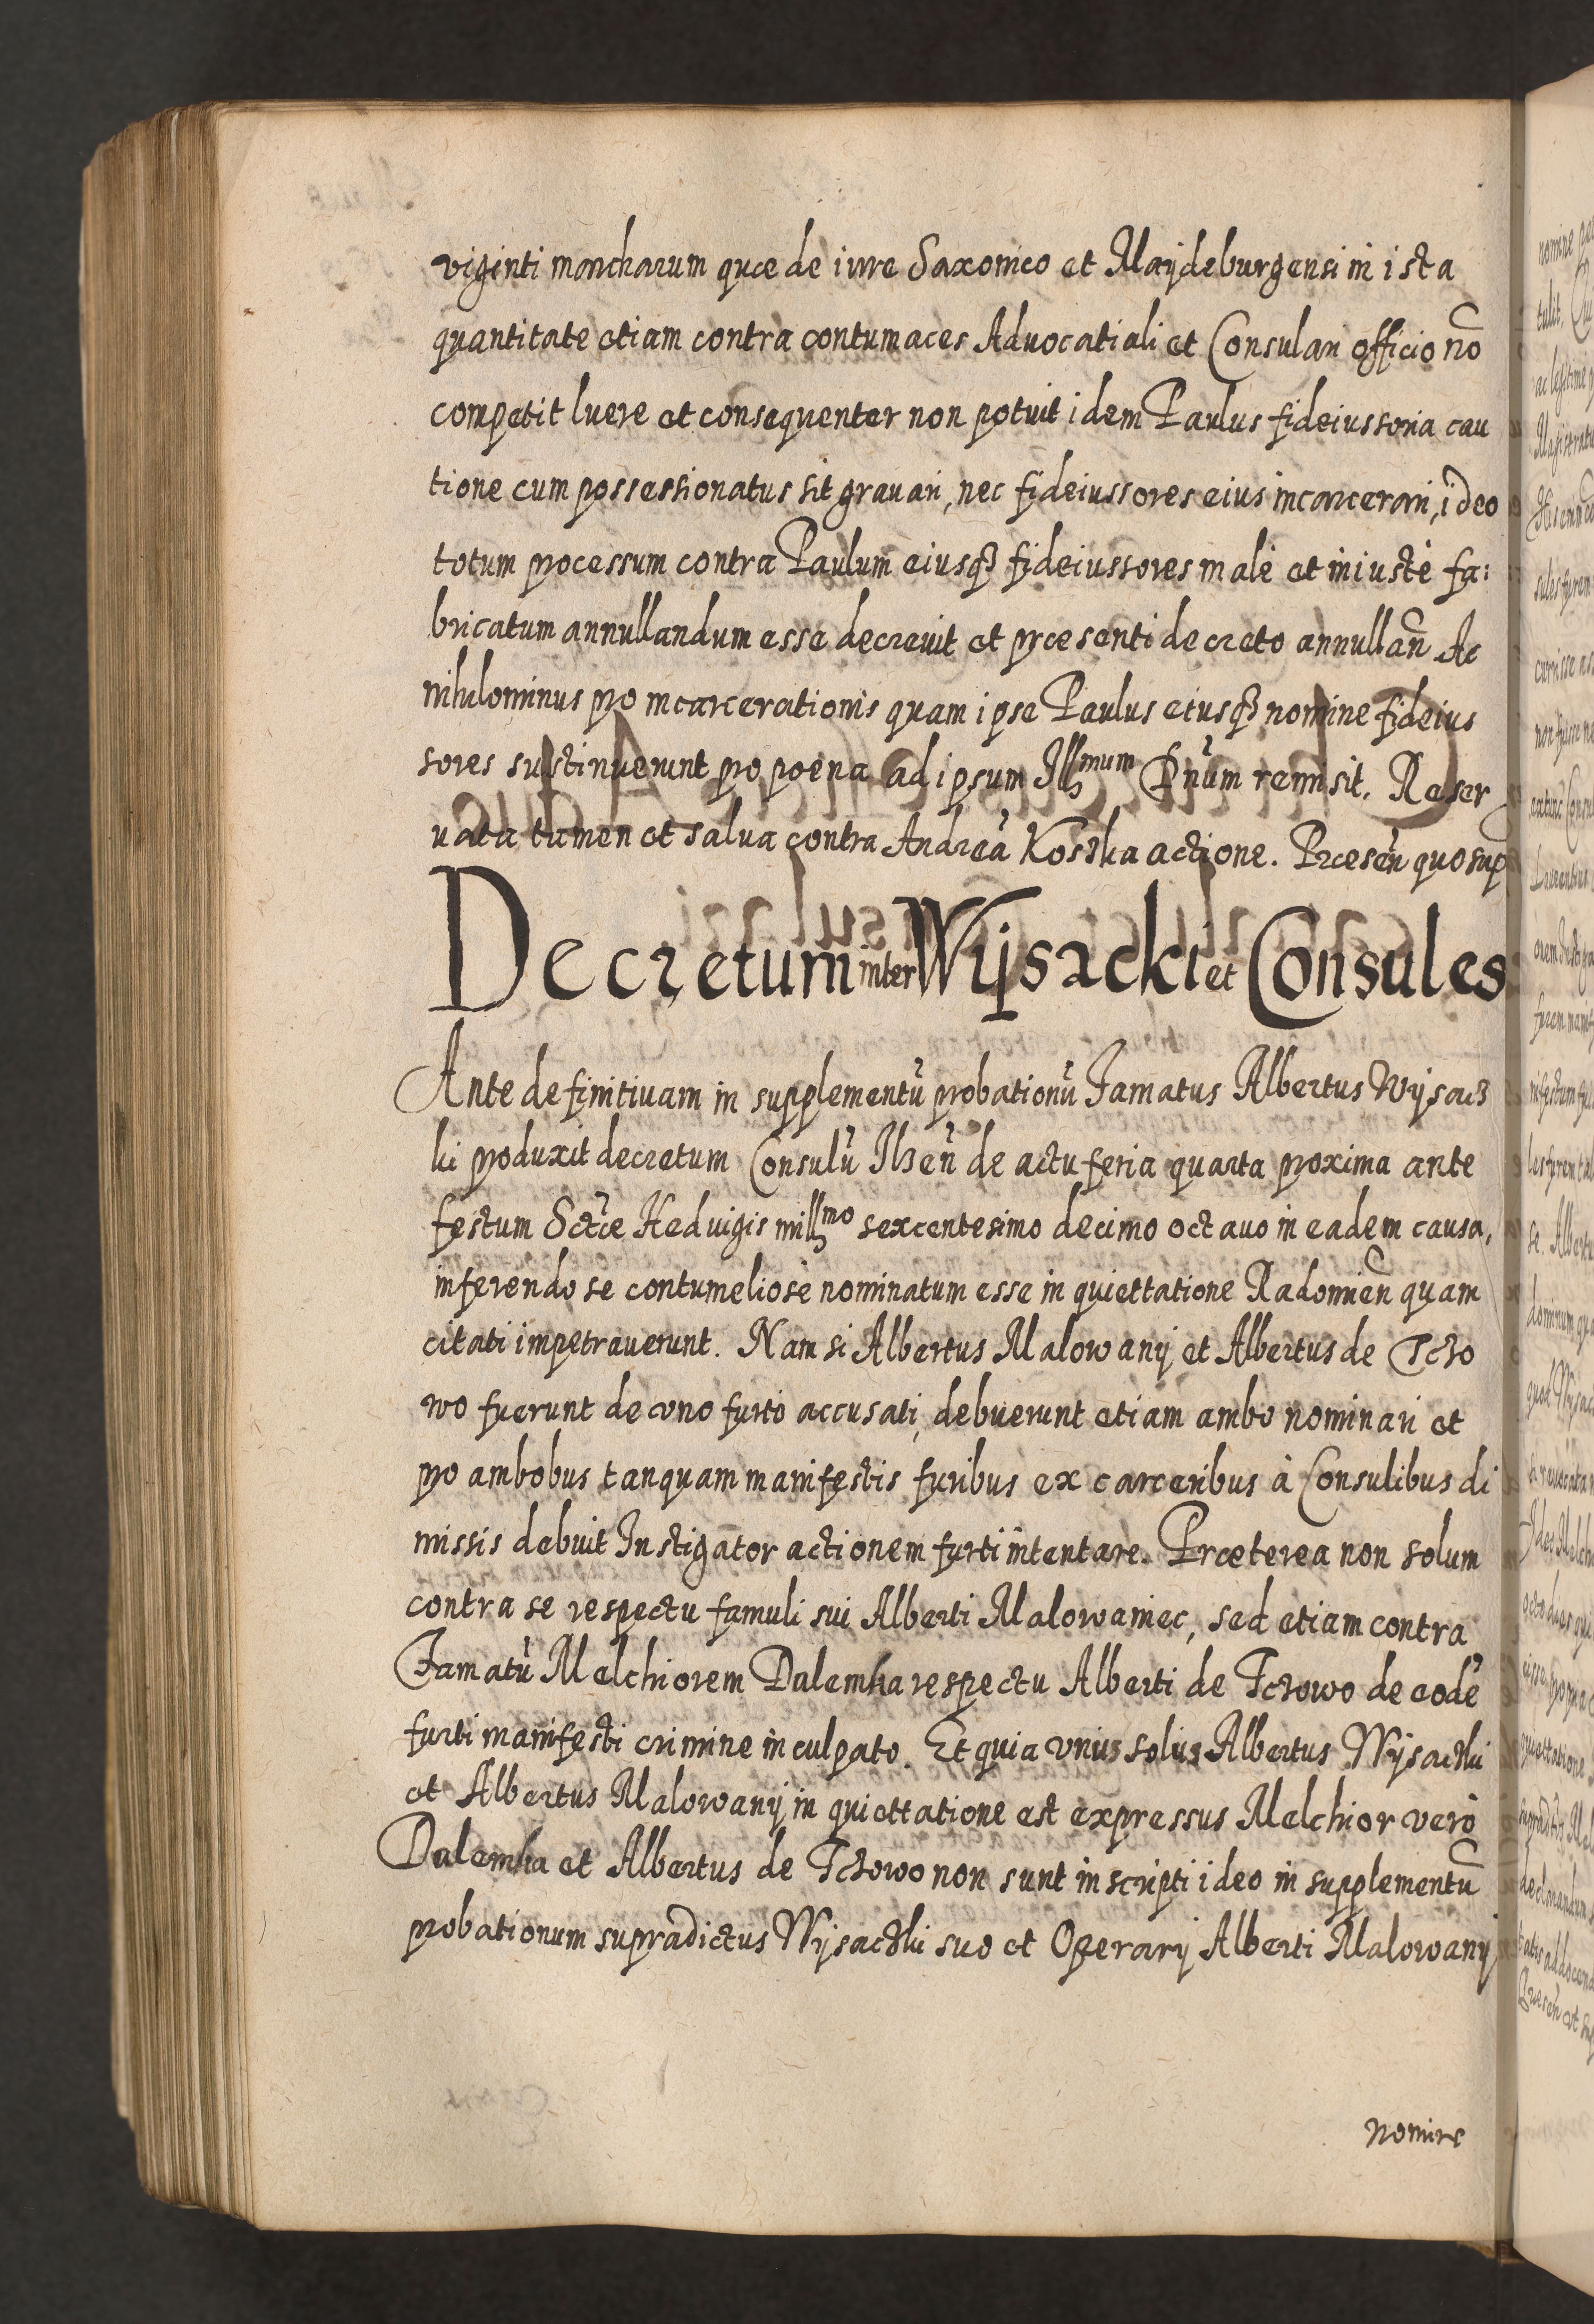 viginti marcharum quæ de iure Saxonico et Maijdeburgensi in ista
quantitate etiam contra contumaces Aduocatiali et Consulari officio nō
competit luere et consequenter non potuit idem Paulus fideiussoria cau
tione cum possessionatus sit grauari, nec fideiussores eius incarcerari, ideo
totum processum contra Paulum eiusqȝ fideiussores malè et iniustè fa:
bricatum annullandum esse decreuit et præsenti decreto annullañ Ac
nihilominus pro incarcerationis quam ipse Paulus eiusqȝ nomine fideius
sores sustinuerunt pro poena ad ipsum Illmum Dnūm remisit. Reser
uata tamen et salua contra Andreā Kostka actione. Præseñ quo sup
Decretum inter Wijsocki et Consules
Ante definitiuam in supplementū probationū Famatus Albertus Wijsac
ki produxit decretum Consulū Ilzeñ de actu feria quarta proxima ante
festum Sctæ Heduigis millmo sexcentesimo decimo octauo in eadem causa,
inferendo se contumeliosè nominatum esse in quiettatione Radomieñ quam
citati impetrauerunt. Nam si Albertus Malowanij et Albertus de Tczo
wo fuerunt de vno furto accusati, debuerunt etiam ambo nominari et
pro ambobus tanquam manifestis furibus ex carceribus à Consulibus di
missis debuit Instigator actionem furti intentare. Præterea non solum
contra se respectu famuli sui Alberti Malowaniec, sed etiam contra
Famatū Melchiorem Dalemka respectu Alberti de Tczowo de eodē
furti manifesti crimine inculpato. Et quia vnius solius Albertus Wijsaczki
et Albertus Malowanij in quiettatione est expressus Melchior verò
Dalemka et Albertus de Tczowo non sunt inscripti ideo in supplementū
probationum supradictus Wijsaczki suo et Operarij Alberti Malowanij
nomine